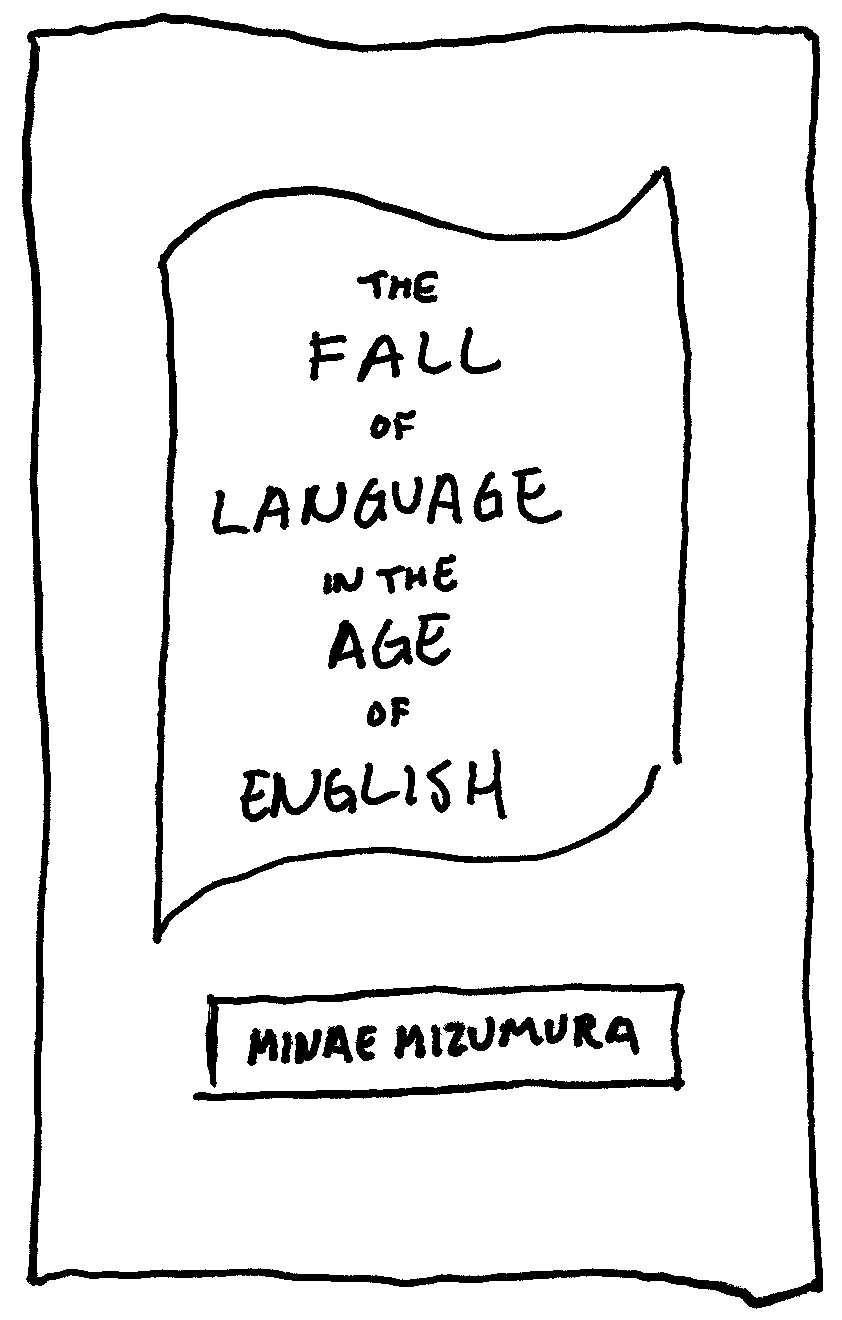 THE
FALL
OF
LANGUAGE
IN THE
AGE
OF
ENGLISH
MINAE MIZUMURA